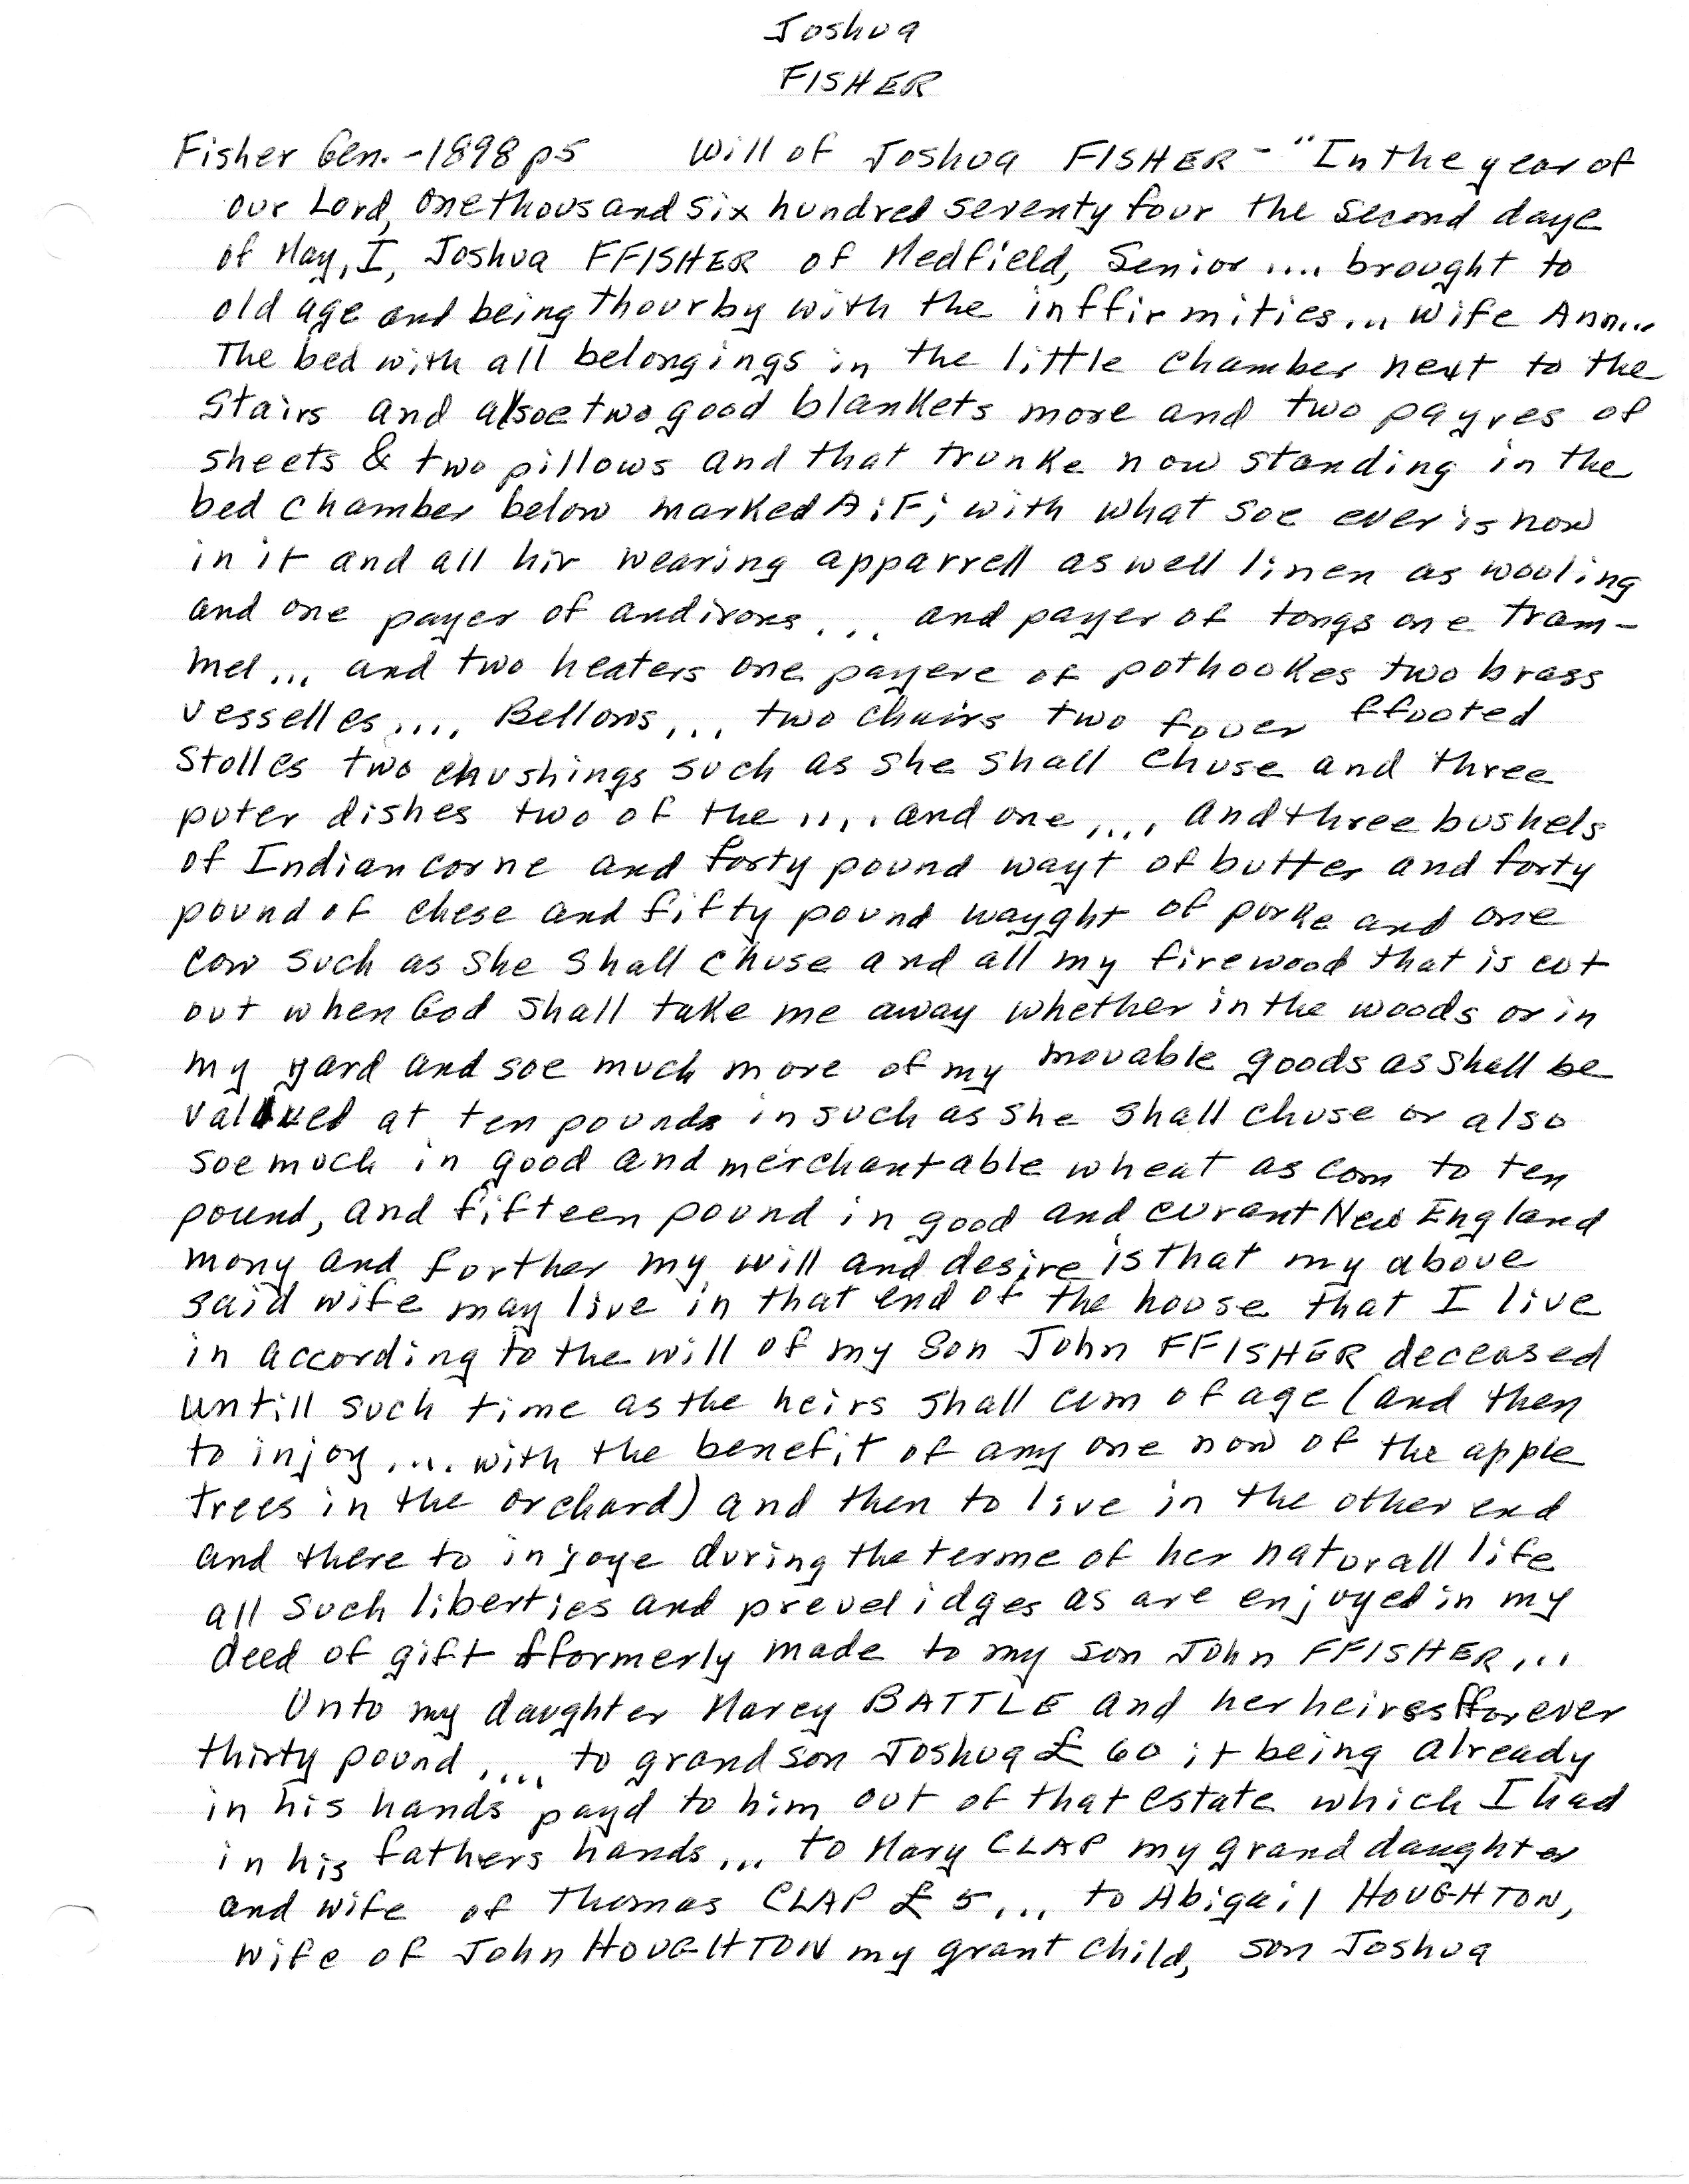 Joshua
FISHER
Fisher Gen. - 1898 p5 Will of Joshua FISHER - "In the year of
our Lord, one thousand six hundred seventy four the second daye
of May, I, Joshua FFISHER of Medfield, Senior .... brought to
old age and being thourby with the inffirmities... wife Ann...
The bed with all belongings in the little chamber next to the
stairs and alsoe two good blankets more and two payres of
sheets & two pillows and that trunke now standing in the
bed chamber below marked A:F; with what soe ever is now
in it and all hir wearing apparrell as well linen as wooling
and one payer of andirons... and payer of tongs one tram-
mel... and two heaters one payere of pothookes two brass
vesselles.... Bellows... two chairs two fower ffooted
stolles two chushings such as she shall chuse and three
puter dishes two of the .... and one .... and three bushels
of Indian corne and forty pound wayt of butter and forty
pound of chese and fifty pound wayght of porke and one
cow such as she shall chuse and all my firewood that is cut
out when God shall take me away whether in the woods or in
my yard and soe much more of my movable goods as shall be
valued at ten pounds in such as she shall chuse or also
soe much in good and merchantable wheat as com to ten
pound, and fifteen pound in good and curant New England
mony and further my will and desire is that my above
said wife may live in that end of the house that I live
in according to the will of my son John FFISHER deceased
untill such time as the heirs shall cum of age (and then
to injoy .... with the benefit of any one now of the apple
trees in the orchard) and then to live in the other end
and there to injoye during the terme of her naturall life
all such liberties and prevelidges as are enjoyed in my
deed of gift fformerly made to my son John FFISHER...
Unto my daughter Marcy BATTLE and her heires fforever
thirty pound .... to grandson Joshua £ 60 it being already
in his hands payd to him out of that estate which I had
in his fathers hands... to Mary CLAP my grand daughter
and wife of Thomas CLAP £ 5... to Abigail HOUGHTON,
wife of John HOUGHTON my grant child, son Joshua